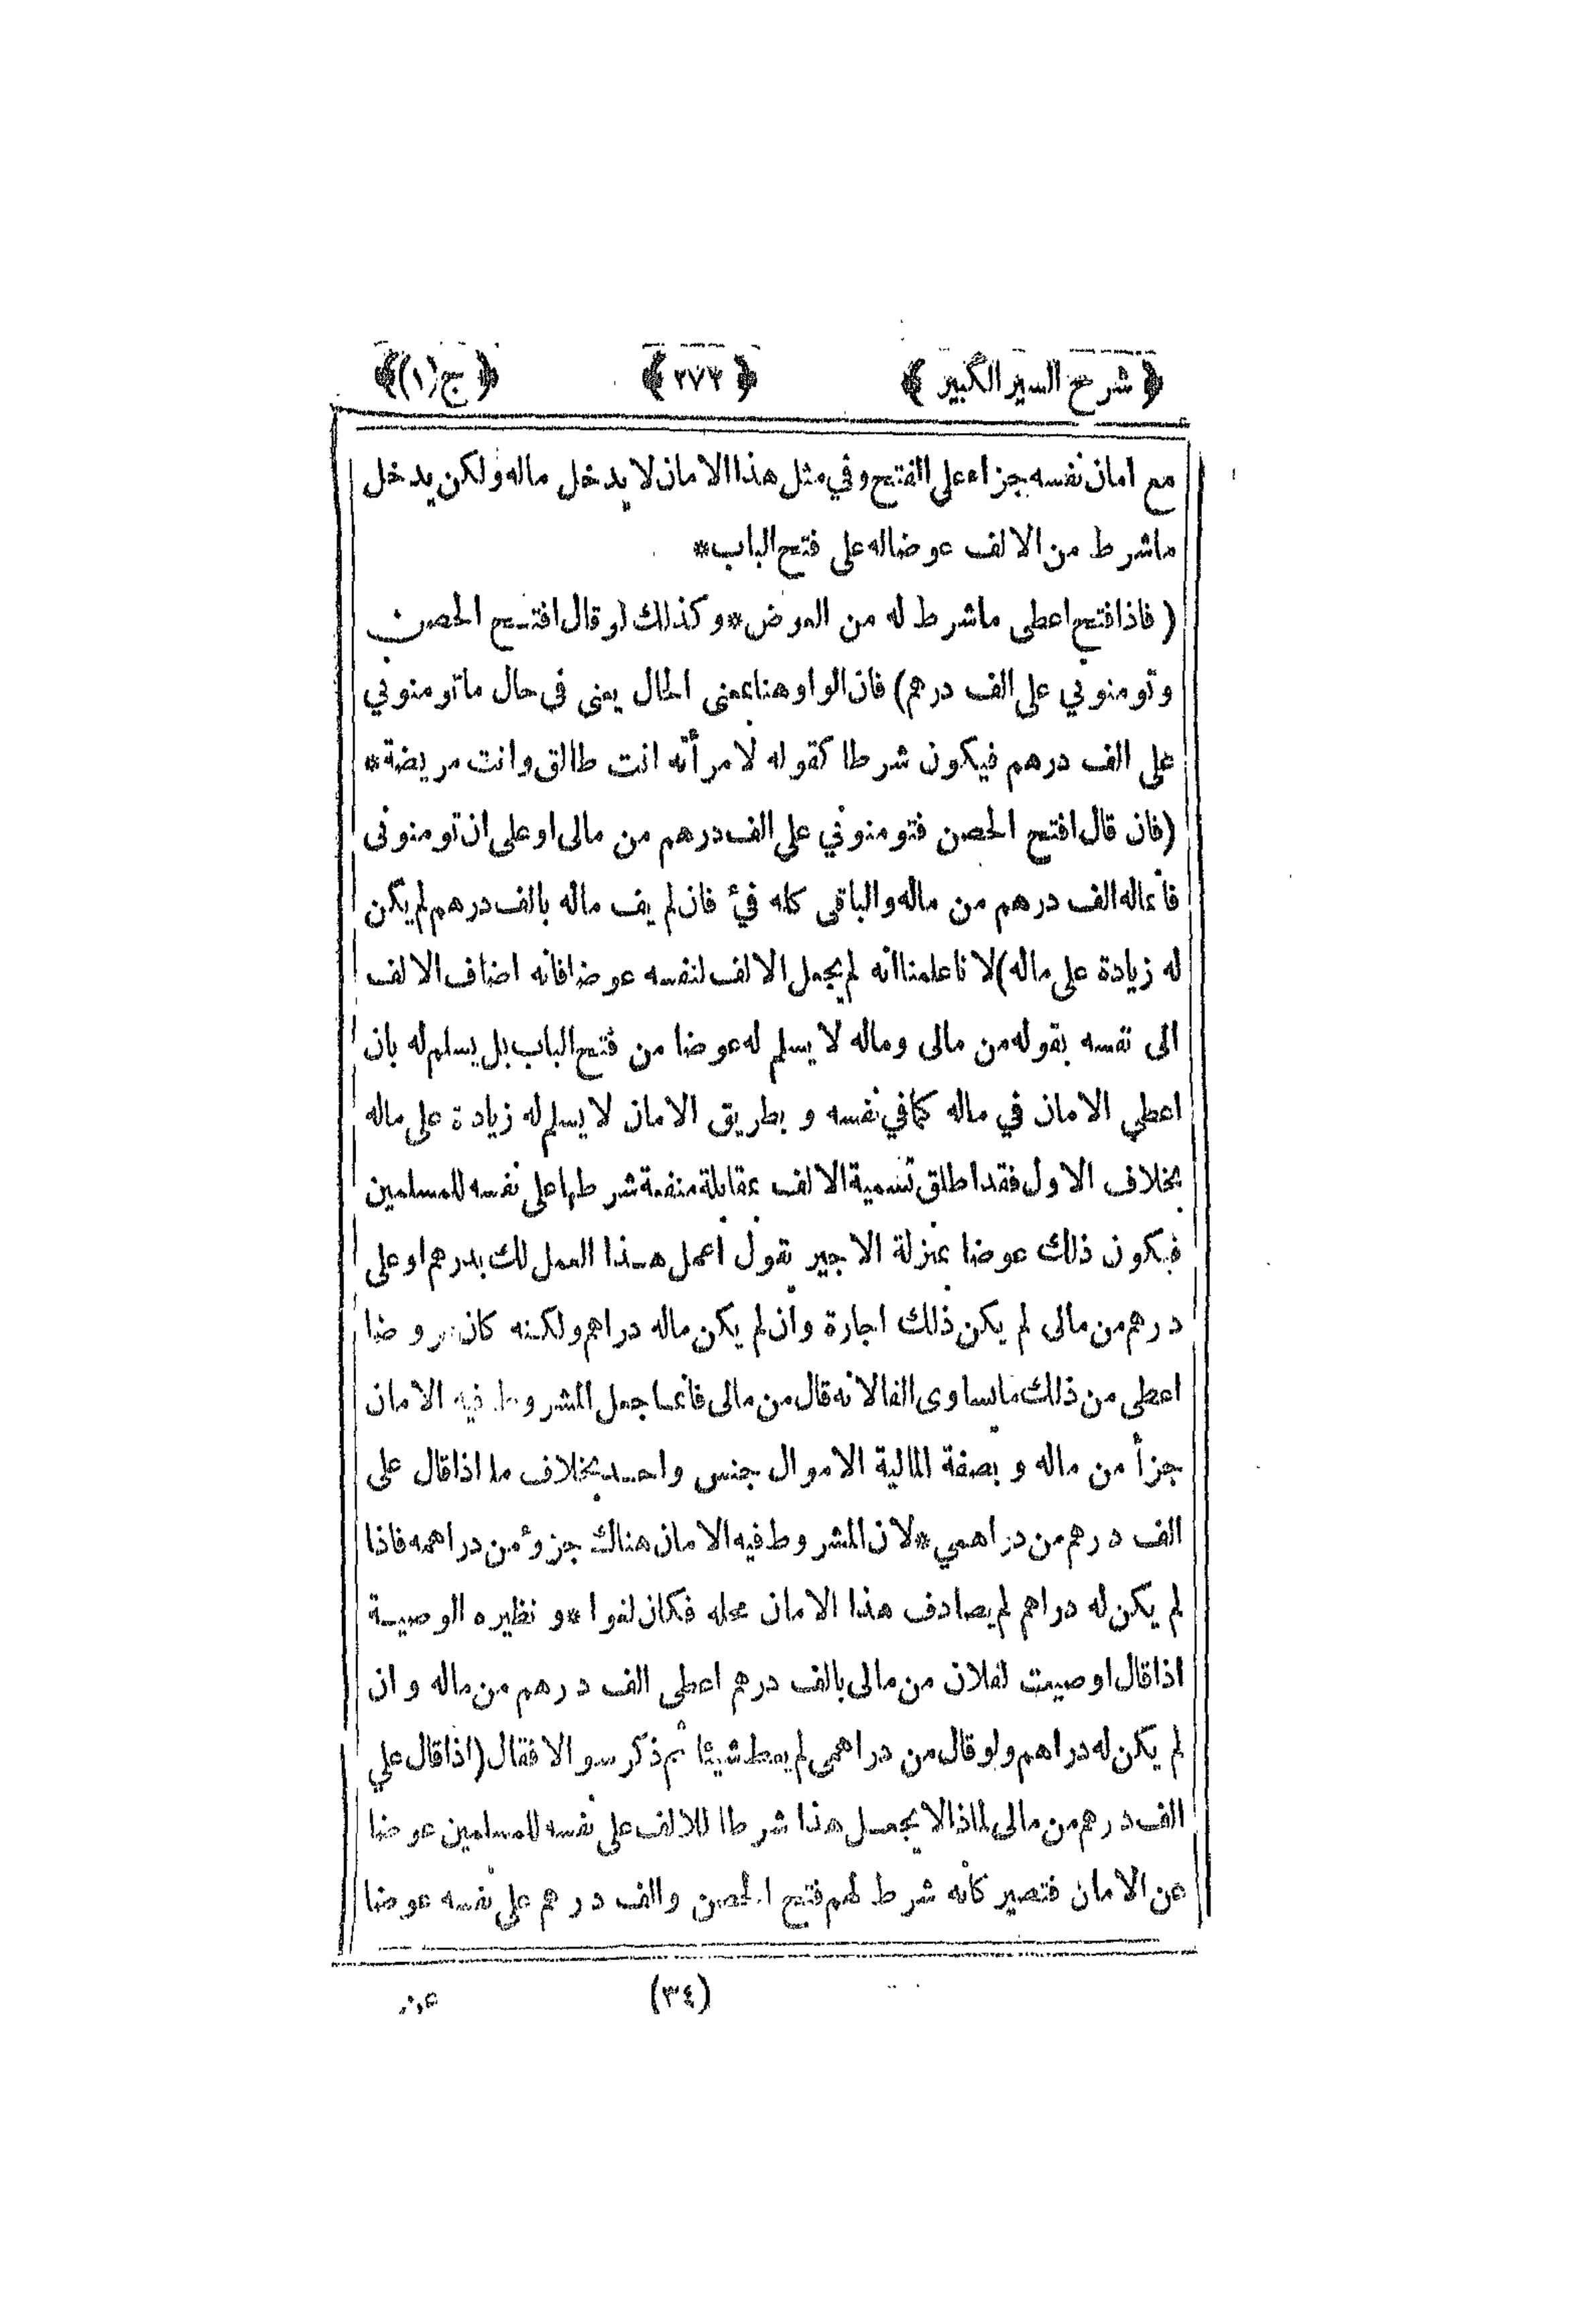 ﴿ شرح السير الكبير ﴾ ﴿ ٢٧٣ ﴾ ﴿ ج (١) ﴾
مع امان نفسه جزاء على الفتح وفي مثل هذا الامان لا يدخل ماله ولكن يدخل
ماشرط من الالف عوضاله على فتح الباب*
( فاذافتح اعطى ماشرط له من العوض* وكذلك لو قال افتح الحصن
وتومنوني على الف درهم) فان الواو هنا بمعنى الحال يعنى فى حال ماتومنوني
على الف درهم فيكون شرطا كقوله لامرأته انت طالق وانت مريضة*
(فان قال افتح الحصن فتومنوني على الف درهم من مالى او على ان تومنونى
فانماله الف درهم من ماله والباقى كله فئ فان لم يف ماله بالف درهم لم يكن
له زيادة على ماله) لاناعلمنا انه لم يجعل الالف لنفسه عوضا فانه اضاف الالف
الى نفسه بقوله من مالى وماله لا يسلم له عوضا من فتح الباب بل يسلم له بان
اعطي الامان في ماله كمافي نفسه و بطريق الامان لا يسلم له زيادة على ماله
بخلاف الاول فقد اطلق تسمية الالف بمقابلة منفعة شرطها على نفسه للمسلمين
فيكون ذلك عوضا بمنزلة الاجير يقول اعمل هذا العمل لك بدرهم او على
درهم من مالى لم يكن ذلك اجارة وان لم يكن ماله دراهم ولكنه كان عروضا
اعطى من ذلك مايساوى الفا لانه قال من مالى فانما جعل المشروط فيه الامان
جزأ من ماله و بصفة المالية الاموال جنس واحد بخلاف ما اذاقال على
الف درهم من دراهمي* لان المشروط فيه الامان هناك جزؤ من دراهمه فاذا
لم يكن له دراهم لم يصادف هذا الامان محله فكان لغوا* و نظيره الوصية
اذاقال اوصيت لفلان من مالى بالف درهم اعطى الف درهم من ماله و ان
لم يكن له دراهم ولو قال من دراهمى لم يعط شيئا ثم ذكر سوالا فقال (اذاقال علي
الف درهم من مالى لماذا لا يجعل هذا شرطا للالف على نفسه للمسلمين عوضا
عن الامان فتصير كانه شرط لهم فتح الحصن والف درهم على نفسه عوضا
(٣٤) عن